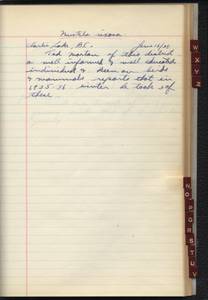 Mustela vison.
Clarke Lake, BC. June 16/38
Ted Morton of this district
a well informed & well educated
individual & keen on birds
& mammals reports that in
1935-36 winter he took 5 of
these.
W
X
Y
Z
N
O
P
Q
R
S
T
U
V